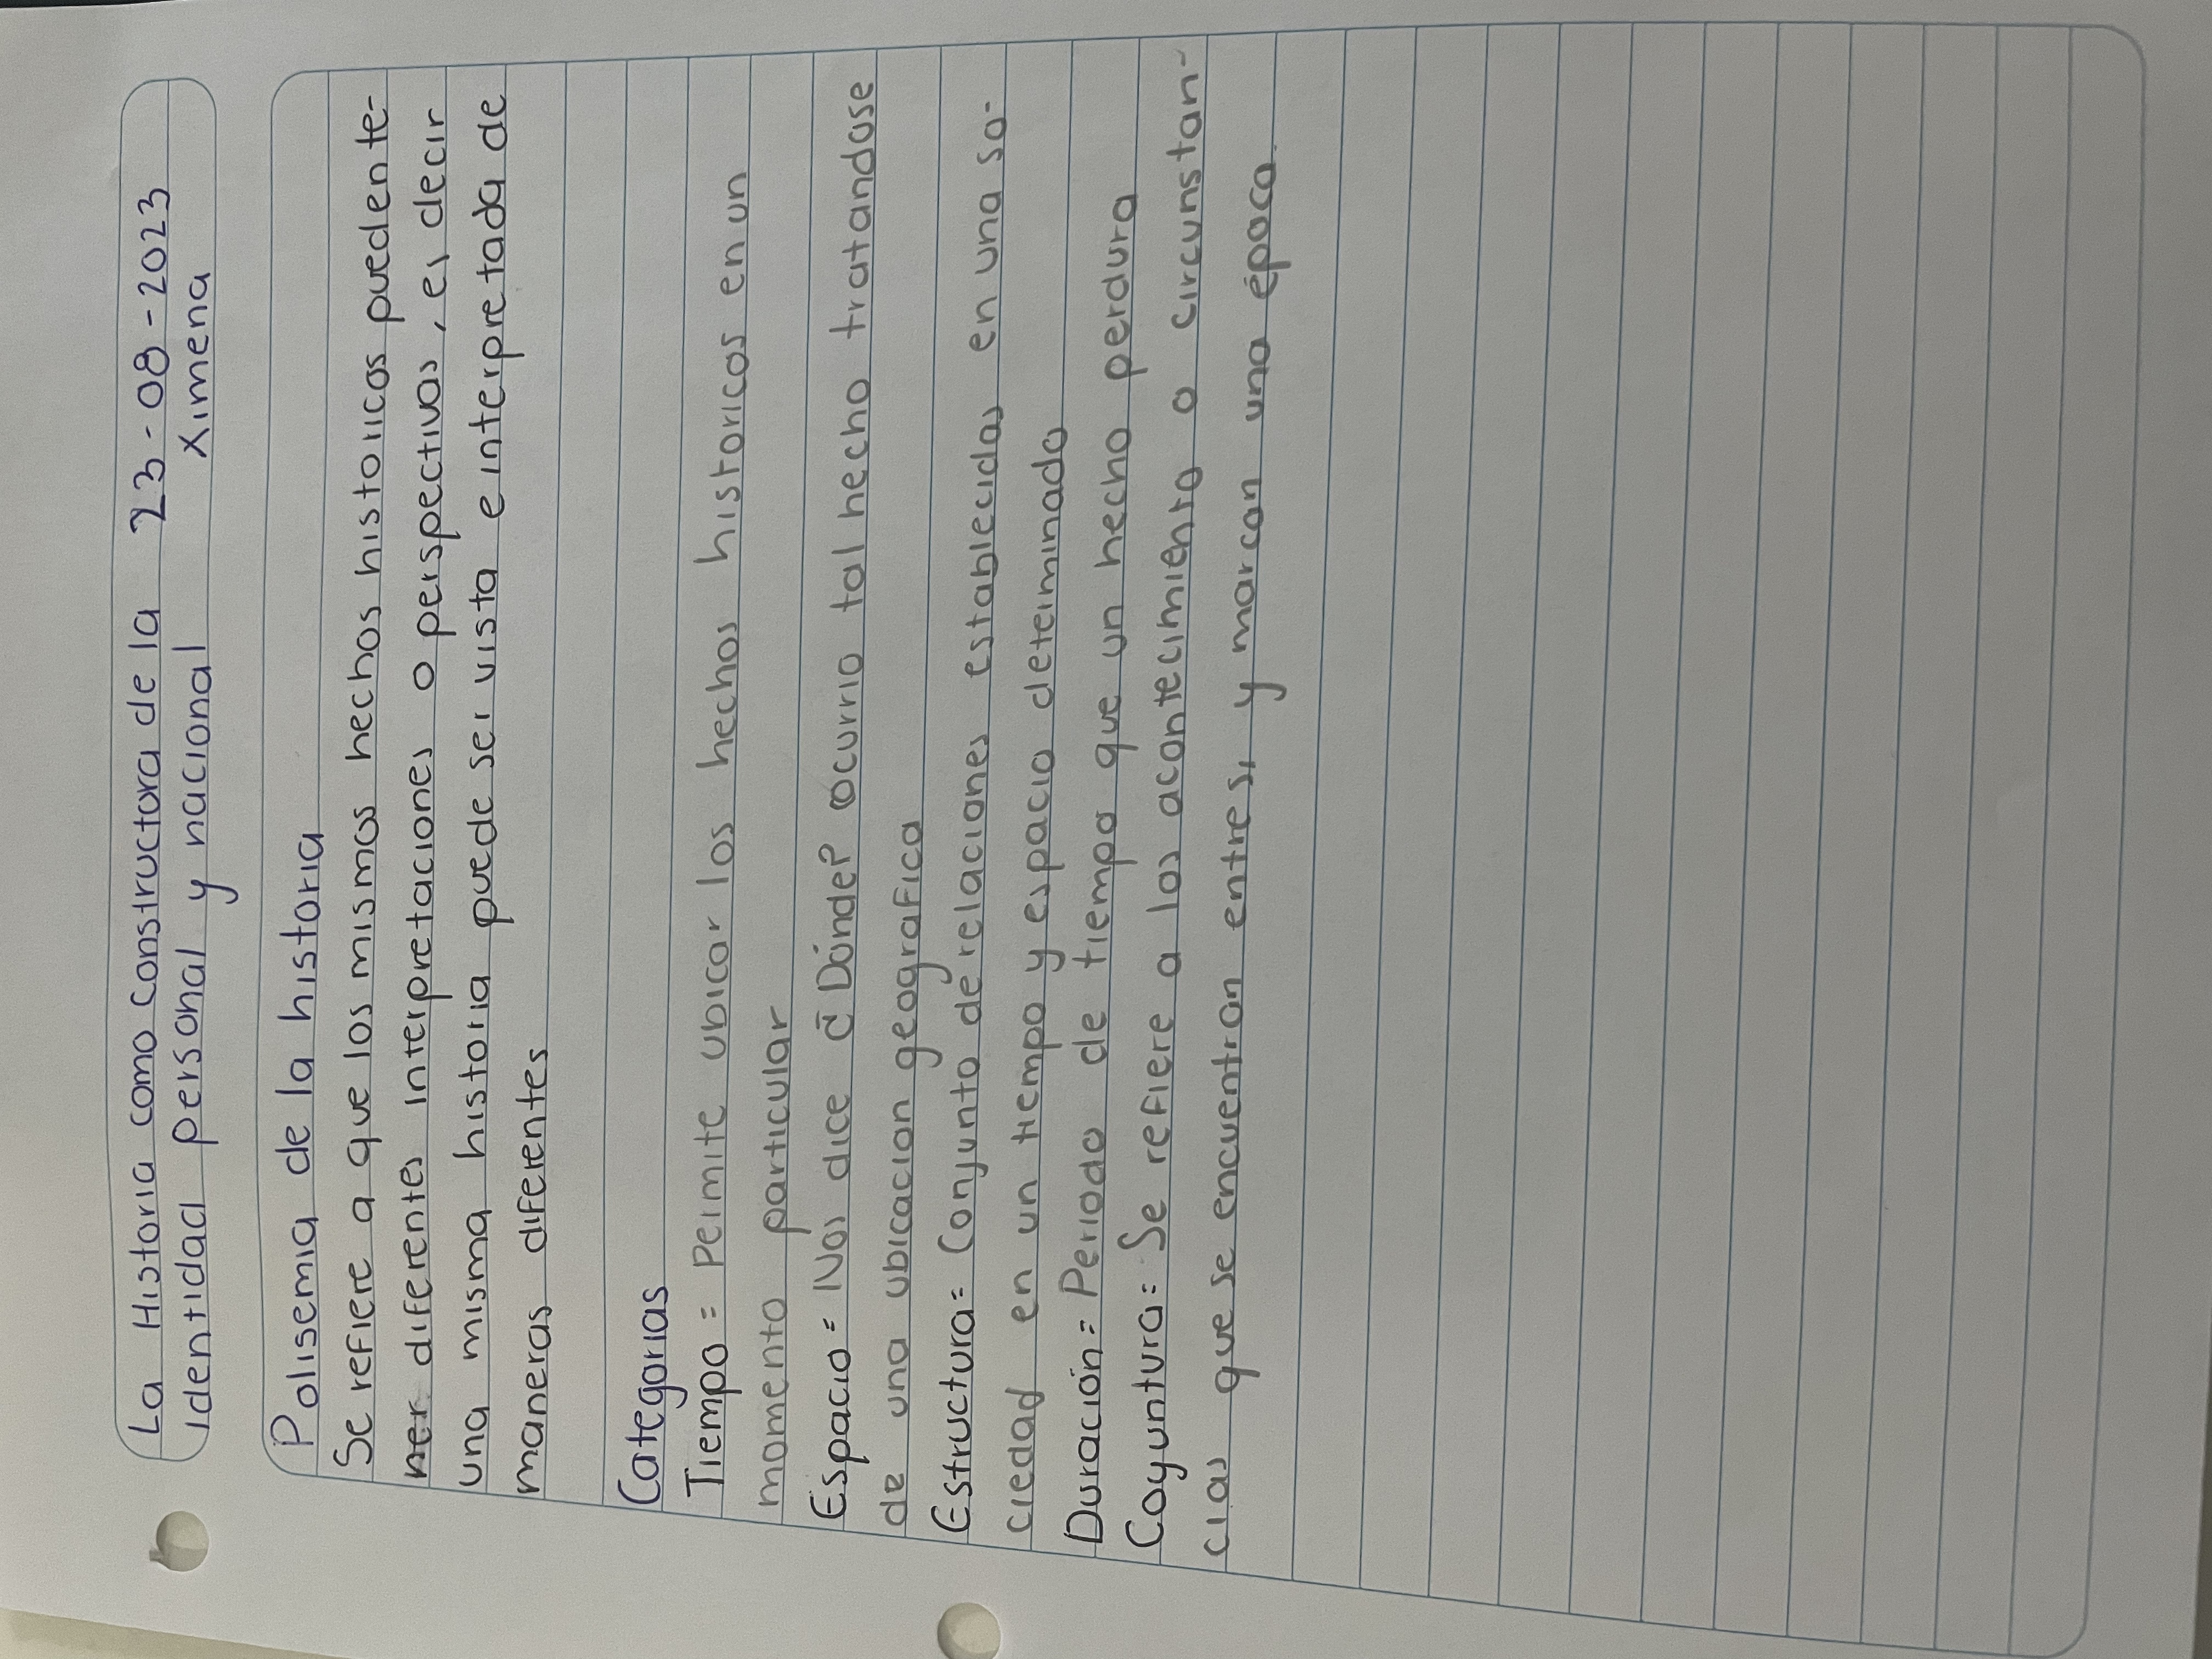 La Historia como constructora de la 23-08-2023
identidad personal y nacional Ximena
Polisemia de la historia
Se refiere a que los mismos hechos historicos pueden te-
ner diferentes interpretaciones o perspectivas, es decir
una misma historia puede ser vista e interpretada de
maneras diferentes
Categorias
Tiempo = Permite ubicar los hechos historicos en un
momento particular
Espacio = Nos dice ¿Dónde? Ocurrio tal hecho tratandose
de una ubicacion geografica
Estructura = Conjunto de relaciones establecidas en una so-
ciedad en un tiempo y espacio determinado
Duración = Periodo de tiempo que un hecho perdura
Coyuntura = Se refiere a los acontecimiento o circunstan-
cias que se encuentran entre si y marcan una época.